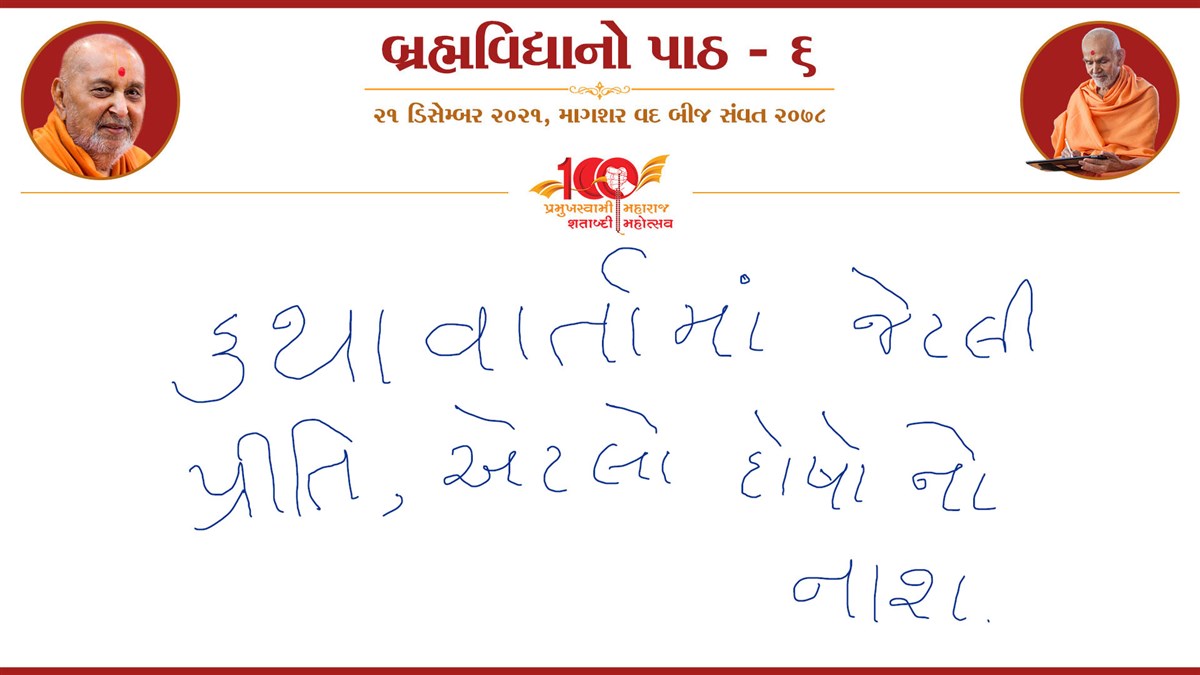 બ્રહ્મવિદ્યાનો પાઠ - ૬
૨૧ ડિસેમ્બર ૨૦૨૧, માગશર વદ બીજ સંવત ૨૦૭૮
100
પ્રમુખસ્વામી મહારાજ
શતાબ્દી મહોત્સવ
કથાવાર્તામાં જેટલી
પ્રીતિ, એટલો દોષોનો
નાશ.